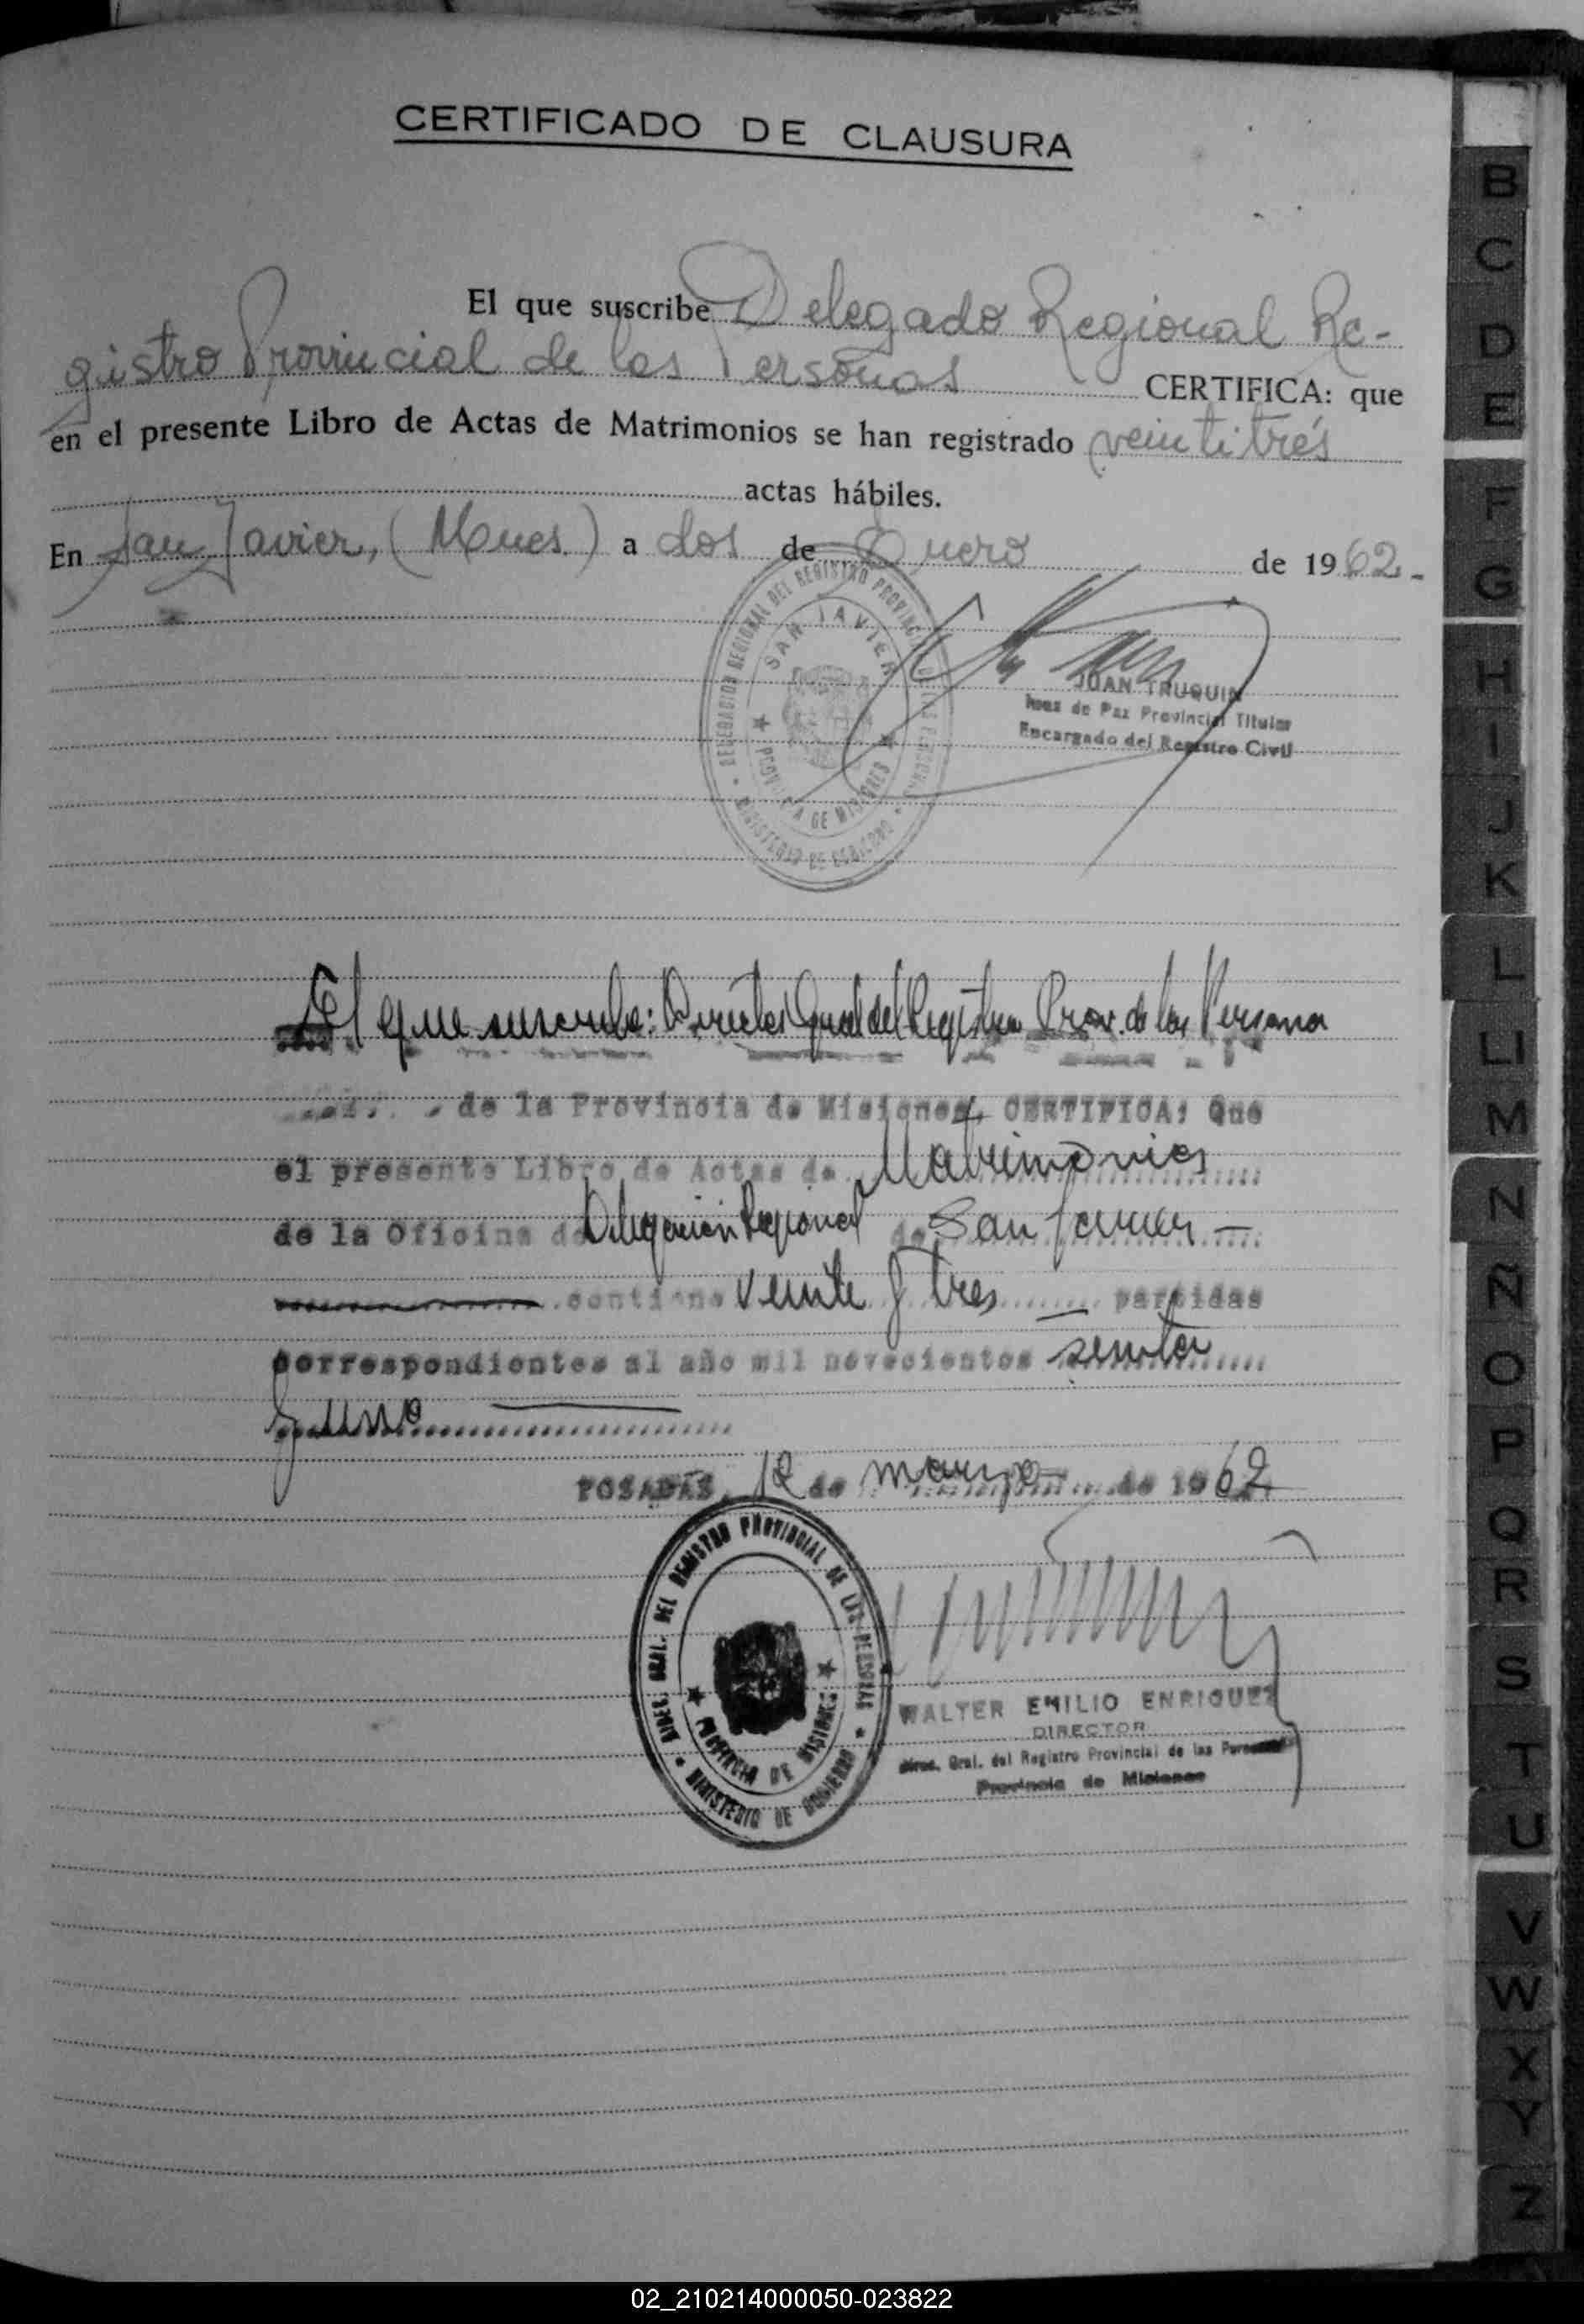 CERTIFICADO DE CLAUSURA
El que suscribe Delegado Regional Re-
gistro Provincial de las Personas CERTIFICA: que
en el presente Libro de Actas de Matrimonios se han registrado veintitrés
actas hábiles.
En San Javier, (Mnes) a dos de Enero de 1962.-
DELEGACION REGIONAL DEL REGISTRO PROVINCIAL DE LAS PERSONAS
SAN JAVIER
PROVINCIA DE MISIONES
MINISTERIO DE GOBIERNO
JUAN TRUQUIN
Juez de Paz Provincial Titular
Encargado del Registro Civil
El que suscribe: Director Gral del Registro Prov. de las Personas
de la Provincia de Misiones, CERTIFICA: Que
el presente Libro de Actas de Matrimonios
de la Oficina de Delegación Regional de San Javier —
contiene veinte y tres — partidas
correspondientes al año mil novecientos sesenta
y uno
POSADAS, 12 de marzo de 1962
DIREC. GRAL. DEL REGISTRO PROVINCIAL DE LAS PERSONAS
PROVINCIA DE MISIONES
MINISTERIO DE GOBIERNO
WALTER EMILIO ENRIQUEZ
DIRECTOR
Direc. Gral. del Registro Provincial de las Personas
Provincia de Misiones
B
C
D
E
F
G
H
I
J
K
L
Ll
M
N
Ñ
O
P
Q
R
S
T
U
V
W
X
Y
Z
02_210214000050-023822